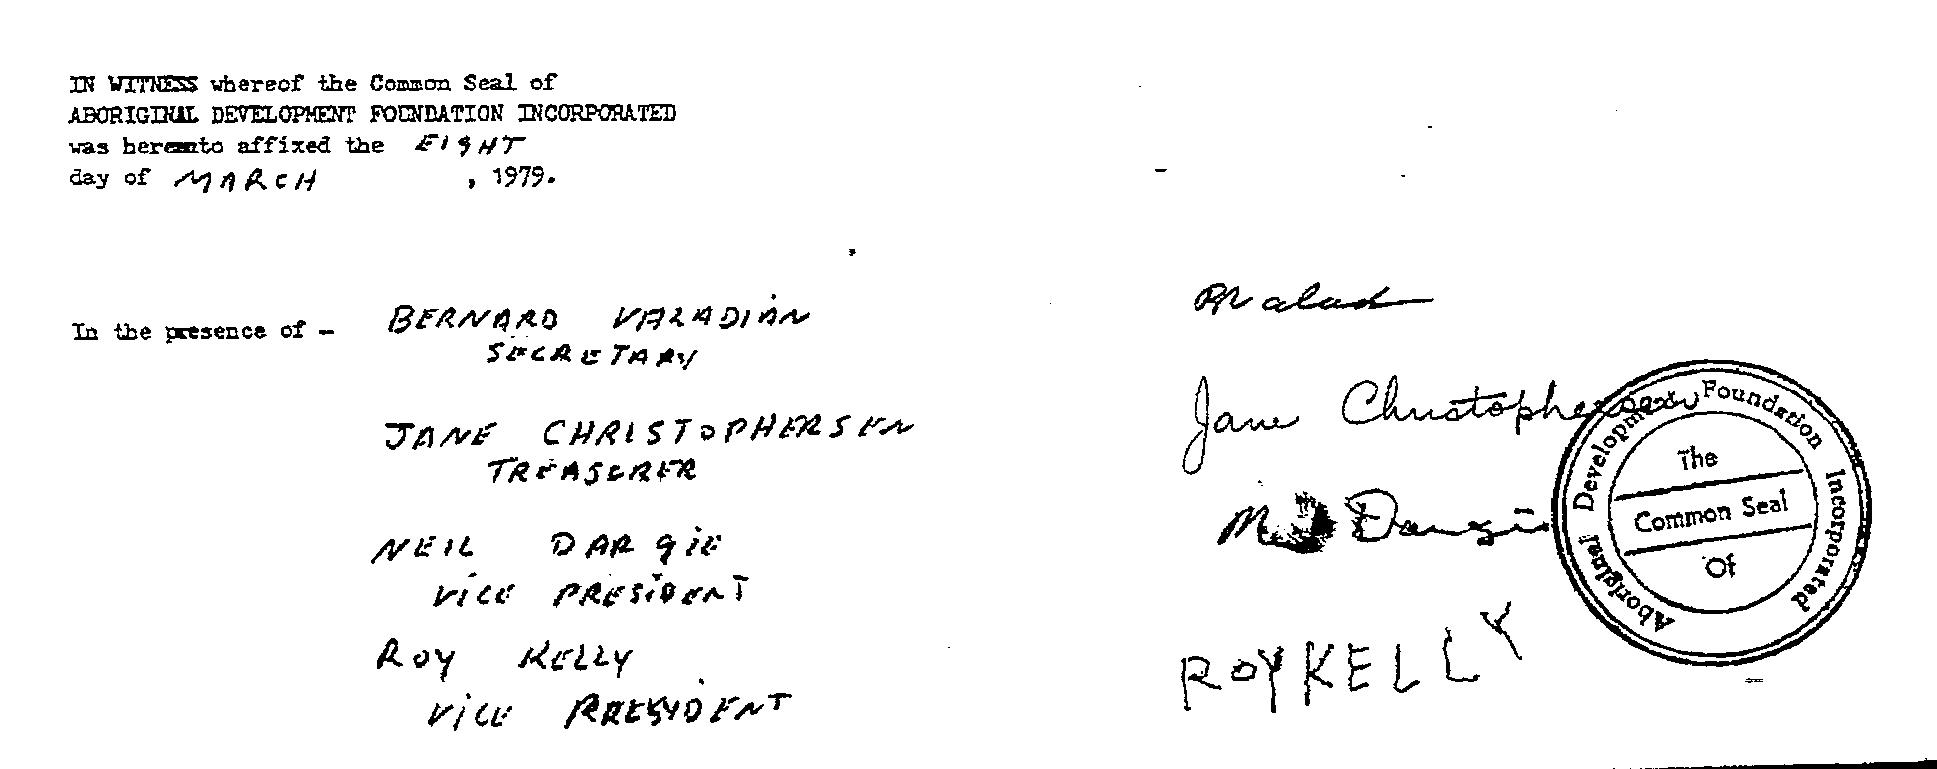 IN WITNESS whereof the Common Seal of
ABORIGINAL DEVELOPMENT FOUNDATION INCORPORATED
was hereunto affixed the EIGHT
day of MARCH , 1979.
In the presence of - BERNARD VALADIAN
SECRETARY
JANE CHRISTOPHERSEN
TREASURER
NEIL DARGIE
VICE PRESIDENT
ROY KELLY
VICE PRESIDENT
Jane Christophersen
Dargie
ROY KELLY
Aboriginal Development Foundation Incorporated
The
Common Seal
Of